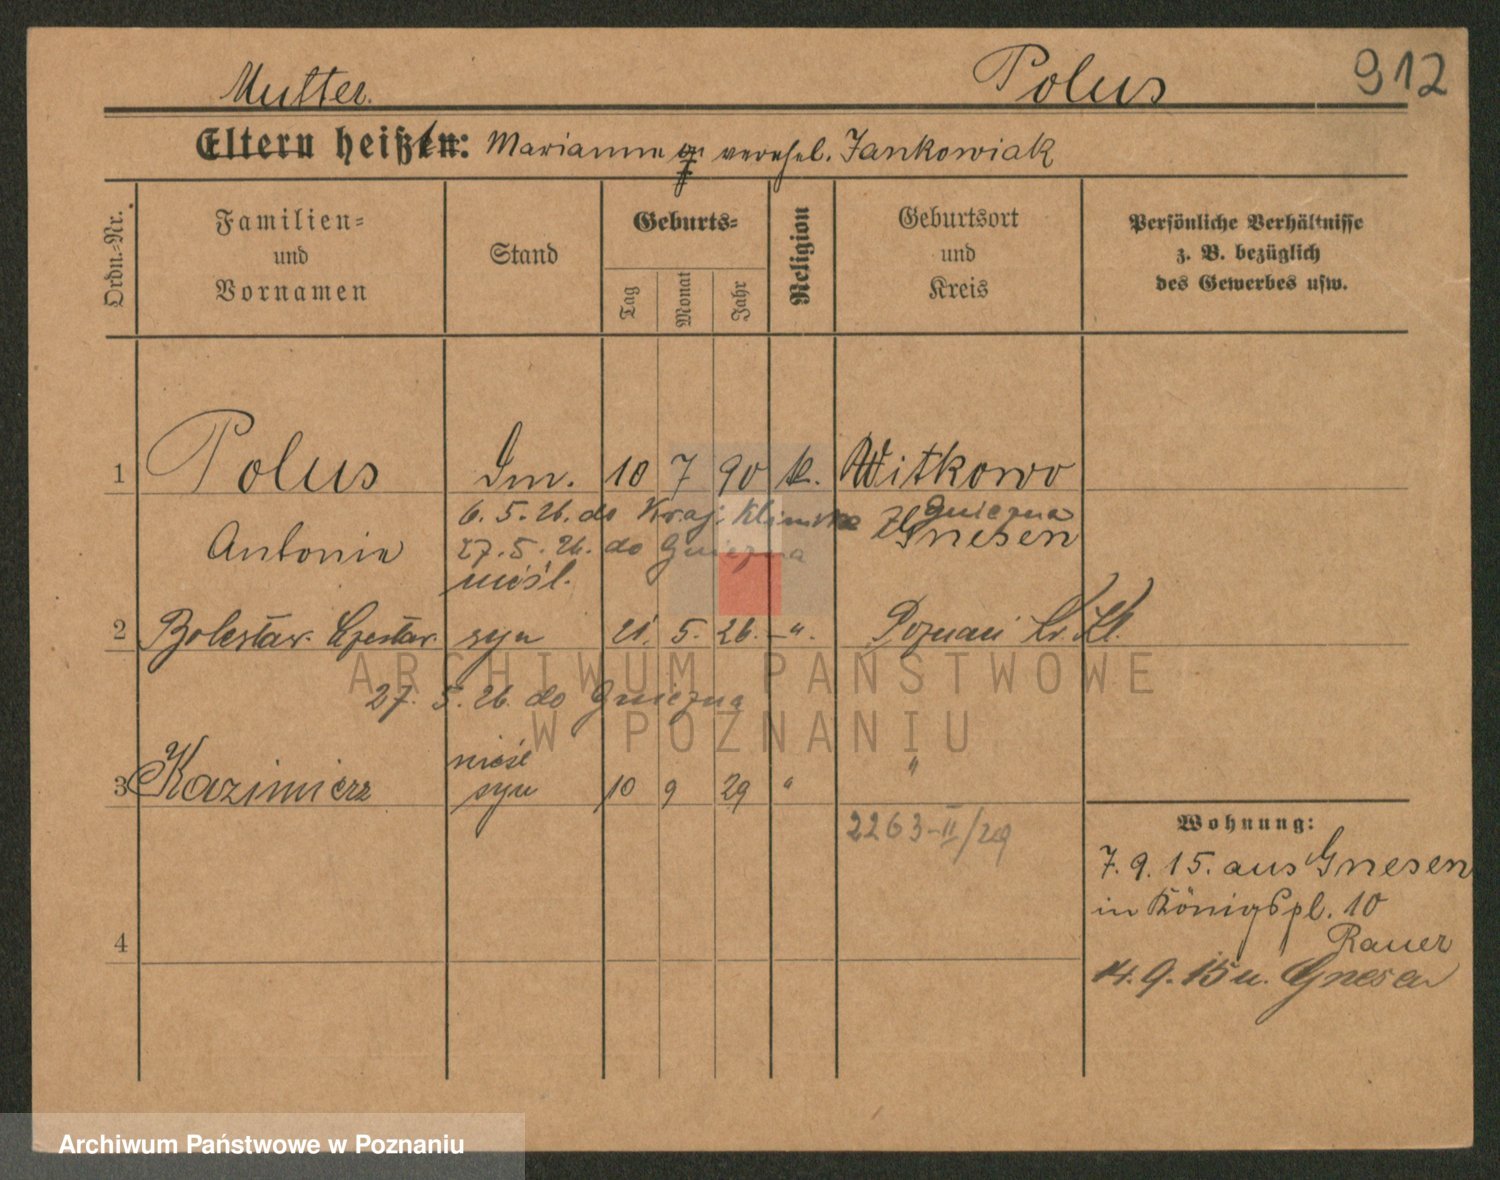 Mutter. Polus 912
Eltern heißt: Marianna verehel. Jankowiak
Ordn.-Nr.
Familien-
und
Vornamen
Stand
Geburts-
Tag
Monat
Jahr
Religion
Geburtsort
und
Kreis
Persönliche Verhältnisse
z. B. bezüglich
des Gewerbes usw.
1 Polus 10 7 90 k. Witkowo
6. 5. 26. do Kraj. Gniezna
Antonie Gnesen
27. 5. 26. do Gniezna
nieśl.
2 Bolesław Czesław syn 21. 5. 26. -"-. Poznań
27. 5. 26. do Gniezna
nieśl
3 Kazimierz syn 10 9 29 " "
2263-II/29
4
Wohnung:
7. 9. 15. aus Gnesen
in Königspl. 10
Rauer
14. 9. 15 n. Gnesen
ARCHIWUM PAŃSTWOWE
W POZNANIU
Archiwum Państwowe w Poznaniu